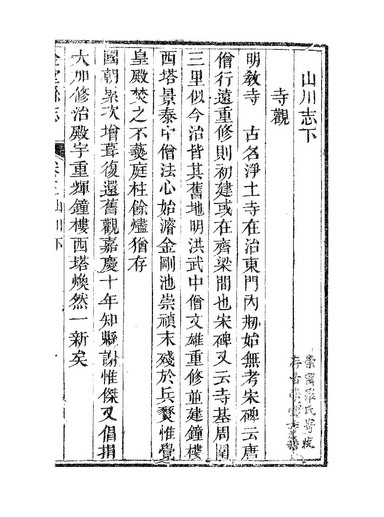 山川志下
寺觀
明教寺　古名淨土寺在治東門內刱始無考宋碑云唐
僧行遠重修則初建或在齊梁間也宋碑又云寺基周圍
三里似今治皆其舊地明洪武中僧文雄重修並建鐘樓
西塔景泰中僧法心始濬金剛池崇禎末殘於兵燹惟覺
皇殿焚之不爇庭柱餘燼猶存
國朝累次增葺復還舊觀嘉慶十年知縣謝惟傑又倡捐
大加修治殿宇重輝鐘樓西塔煥然一新矣
金堂縣志
山川下